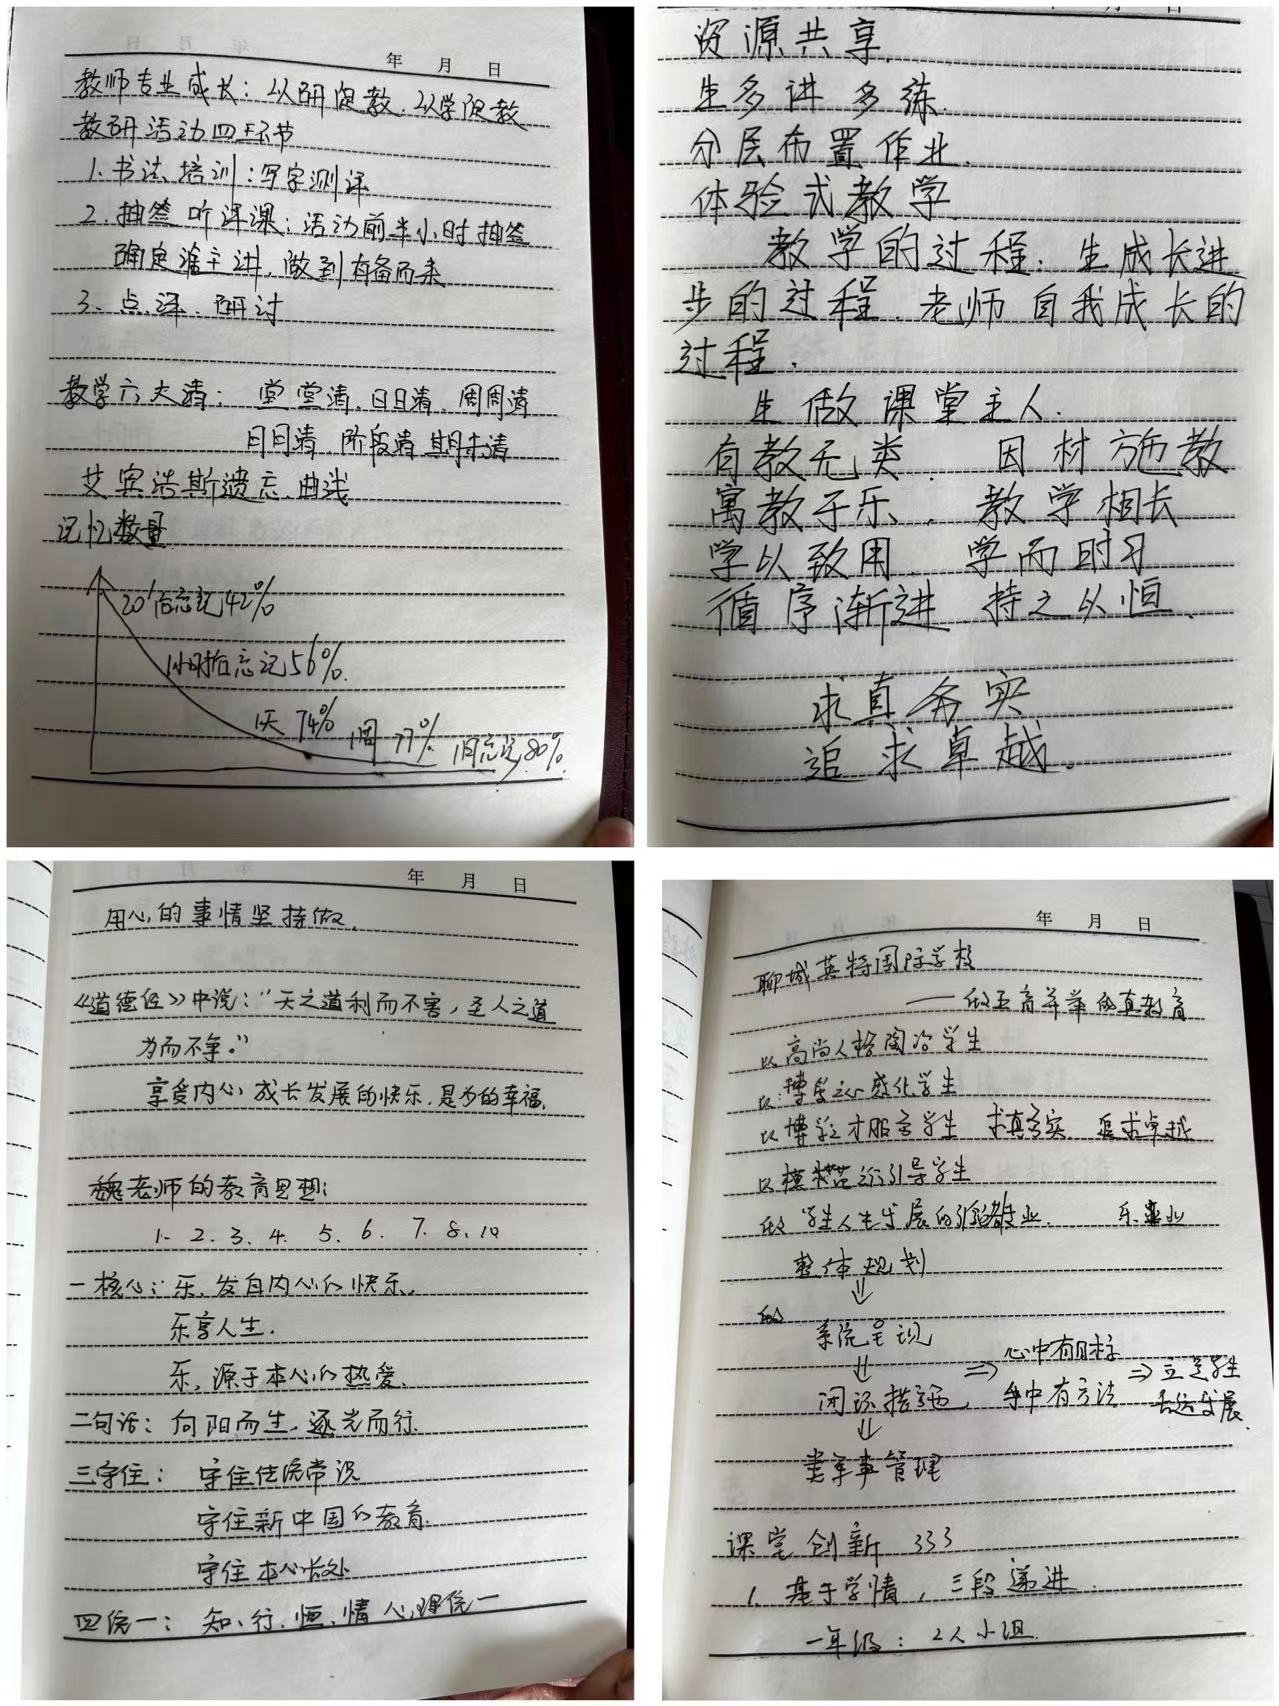 年 月 日
教师专业成长：以研促教、以学促教
教研活动四环节
1、书法培训：写字测评
2、抽签听评课：活动前半小时抽签
确定谁主讲，做到有备而来
3、点评、研讨
教学六大清：堂堂清、日日清、周周清
月月清、阶段清、期末清
艾宾浩斯遗忘曲线
记忆数量
20'后忘记42%
1小时后忘记56%.
1天 74%
1周 77%
1月忘记80%.
月 日
资源共享.
生多讲 多练.
分层布置作业.
体验式教学.
教学的过程、生成长进
步的过程、老师自我成长的
过程.
生做课堂主人.
有教无类 因材施教
寓教于乐、教学相长
学以致用 学而时习
循序渐进 持之以恒、
求真务实
追求卓越。
年 月 日
用心的事情坚持做.
《道德经》中说：“天之道利而不害，圣人之道
为而不争。”
享受内心成长发展的快乐，是为的幸福.
魏老师的教育思想：
1. 2. 3. 4. 5. 6. 7. 8. 10
一核心：乐，发自内心的快乐.
乐享人生.
乐，源于本心的热爱.
二句话：向阳而生、逐光而行.
三守住：守住传统常识
守住新中国的教育.
守住本心长处
四统一：知、行、恒、情心理统一
年 月 日
聊城英特国际学校
——做五育并举的真教育
以高尚人格陶冶学生
以博爱之心感化学生
以博学之才服务学生 求真务实 追求卓越
以模范之行引导学生
做学生人生发展的引路 业. 乐 业
整体规划
⇓
做
系统呈现
⇓ ⇒ 心中有目标 ⇒ 立足学生
闭环措施， 手中有方法 长远发展.
⇓
类军事管理
课堂创新 333
1. 基于学情，三段递进.
一年级：2人小组.